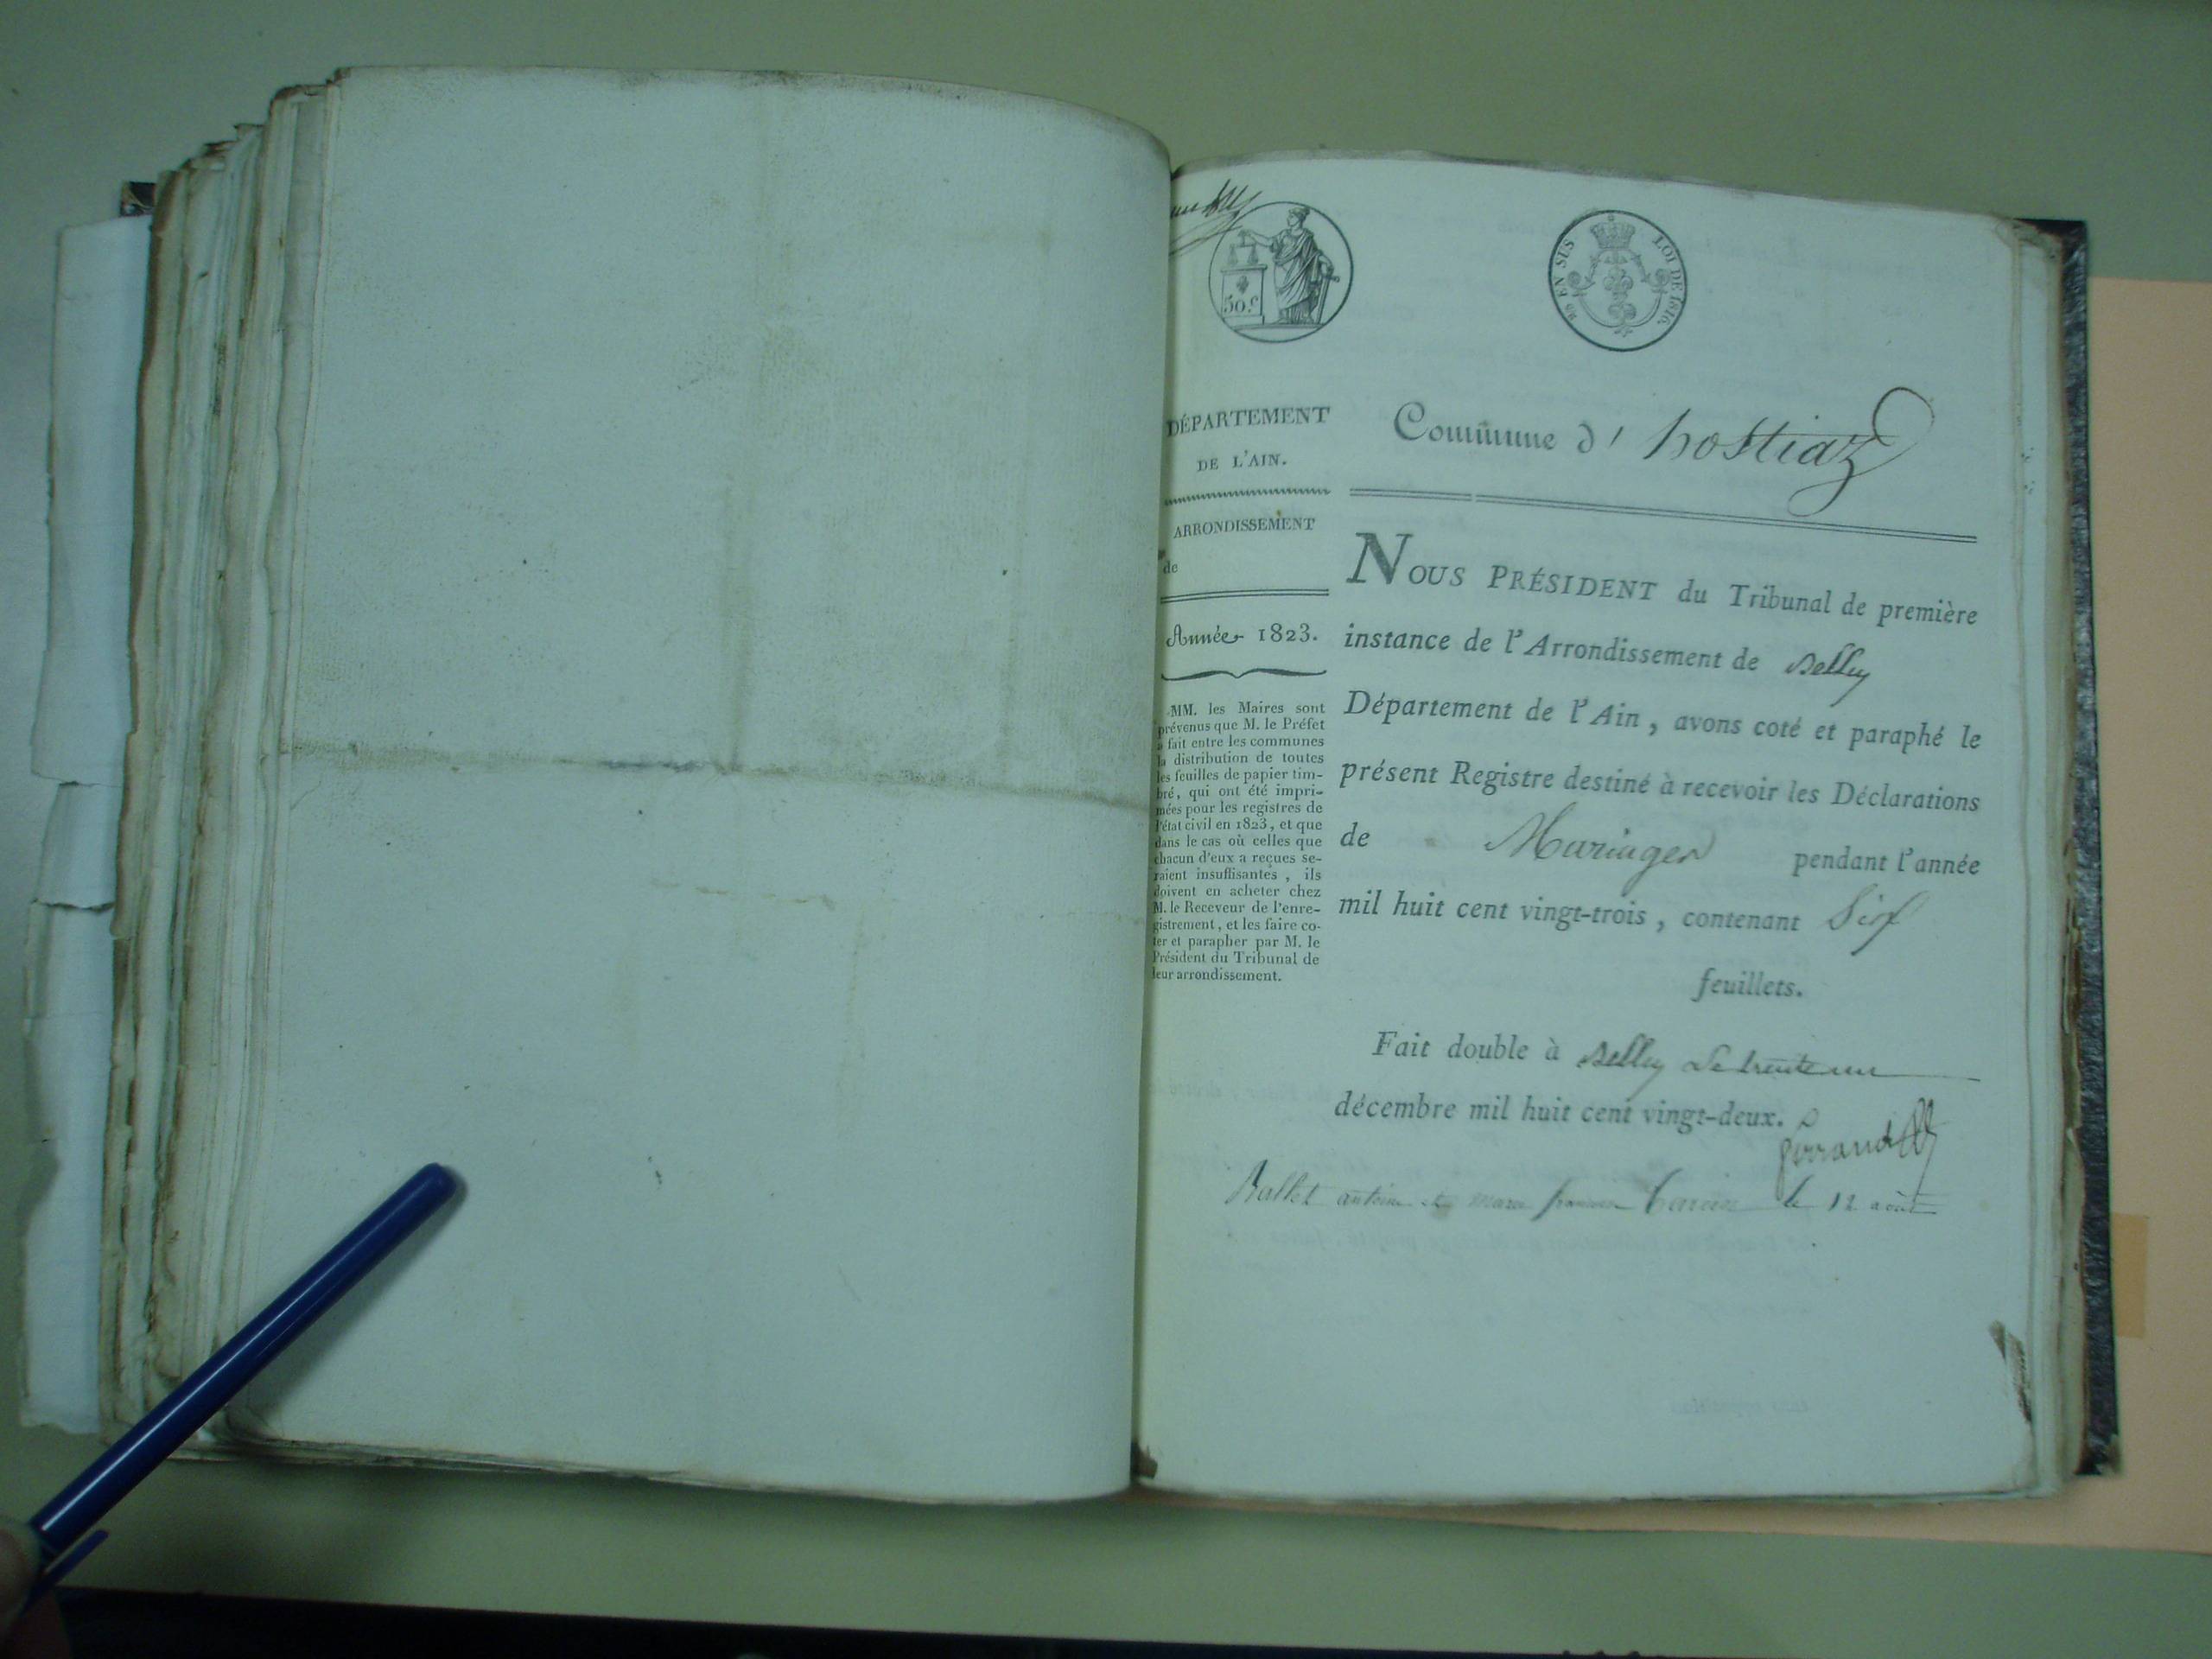 50.c
EN SUS LOI DE 1816.
DÉPARTEMENT
DE L'AIN.
ARRONDISSEMENT
de
Année 1823.
MM. les Maires sont
prévenus que M. le Préfet
a fait entre les communes
la distribution de toutes
les feuilles de papier tim-
bré, qui ont été impri-
mées pour les registres de
l'état civil en 1823, et que
dans le cas où celles que
chacun d'eux a reçues se-
raient insuffisantes, ils
doivent en acheter chez
M. le Receveur de l'enre-
gistrement, et les faire co-
ter et parapher par M. le
Président du Tribunal de
leur arrondissement.
Commune d' hostiaz
NOUS PRÉSIDENT du Tribunal de première
instance de l'Arrondissement de Belley
Département de l'Ain, avons coté et paraphé le
présent Registre destiné à recevoir les Déclarations
de Mariages pendant l'année
mil huit cent vingt-trois, contenant Six
feuillets.
Fait double à Belley Le trente un
décembre mil huit cent vingt-deux.
Ballet antoine et marie le 12 août